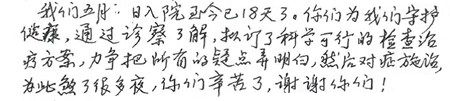 我们五月:日入院至今已18天了。你们为我们守护
健康,通过诊察了解,拟订了科学可行的检查治
疗方案,力争把所有的疑点弄明白,然后对症施治,
为此熬了很多夜,你们辛苦了,谢谢你们!